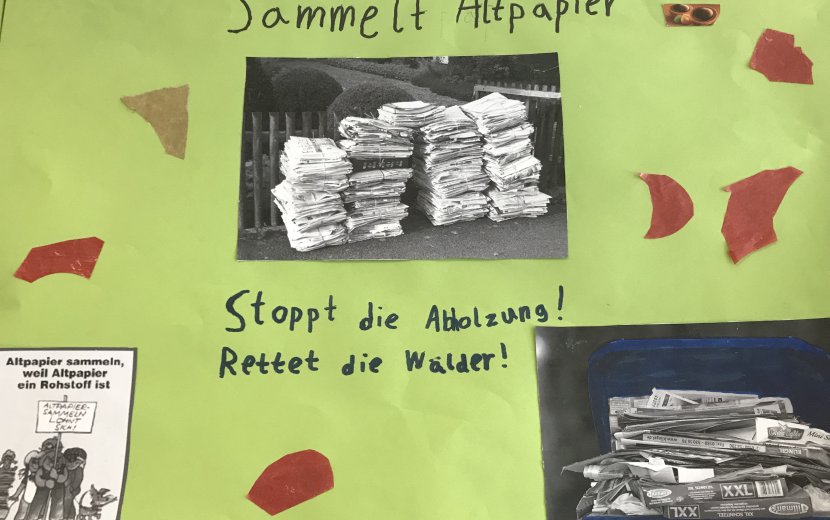 Sammelt Altpapier
Stoppt die Abholzung!
Rettet die Wälder!
Altpapier sammeln,
weil Altpapier
ein Rohstoff ist
ALTPAPIER-
SAMMELN
LOHNT
SICH!
XXL
XXL SCHNITZEL
XXL